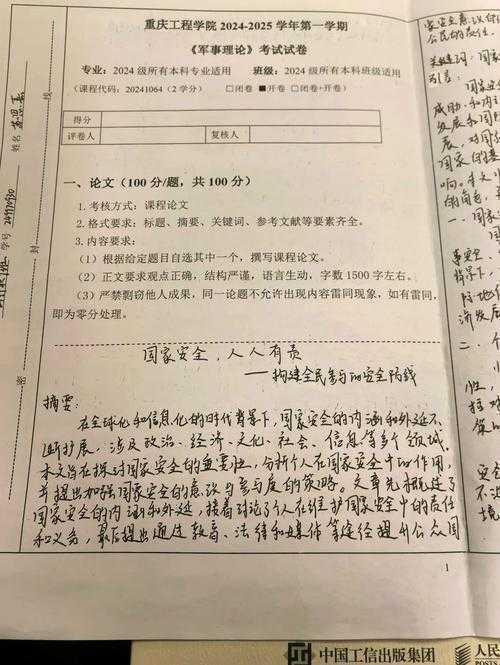 重庆工程学院 2024-2025 学年第一学期
《军事理论》考试试卷
专业:2024 级所有本科专业适用 班级:2024 级所有本科班级适用
(课程代码:20241064(2 学分) □闭卷 ■开卷 □闭卷+开卷)
得分
评卷人 复核人
一、论文(100 分/题,共 100 分)
1.考核方式:课程论文
2.格式要求:标题、摘要、关键词、参考文献等要素齐全。
3.内容要求:
(1)根据给定题目自选其中一个,撰写课程论文。
(2)正文要求观点正确,结构严谨,语言生动,字数 1500 字左右。
(3)严禁剽窃他人成果,同一论题不允许出现内容雷同现象,如有雷同,
即为零分处理。
国家安全,人人有责
——构建全民参与的安全防线
摘要:
在全球化和信息化的时代背景下,国家安全的内涵和外延不
断扩展,涉及政治、经济、文化、社会、信息等多个领域。
本文旨在探讨国家安全的重要性,分析个人在国家安全中的作用,
并提出加强国家安全的意识与参与度的策略。文章先概述了
国家安全的内涵和外延,接着讨论了个人在维护国家安全中的责任
和义务,最后提出通过教育、法律和媒体等途径提升公众国
1
姓名
学号
线
封
密
家安全意识
公民的责任。
关键词:国家
引言:
国家安
发展和国
国家的
一、国家
背景下,
济发展
二、个
中国工信出版集团
人民